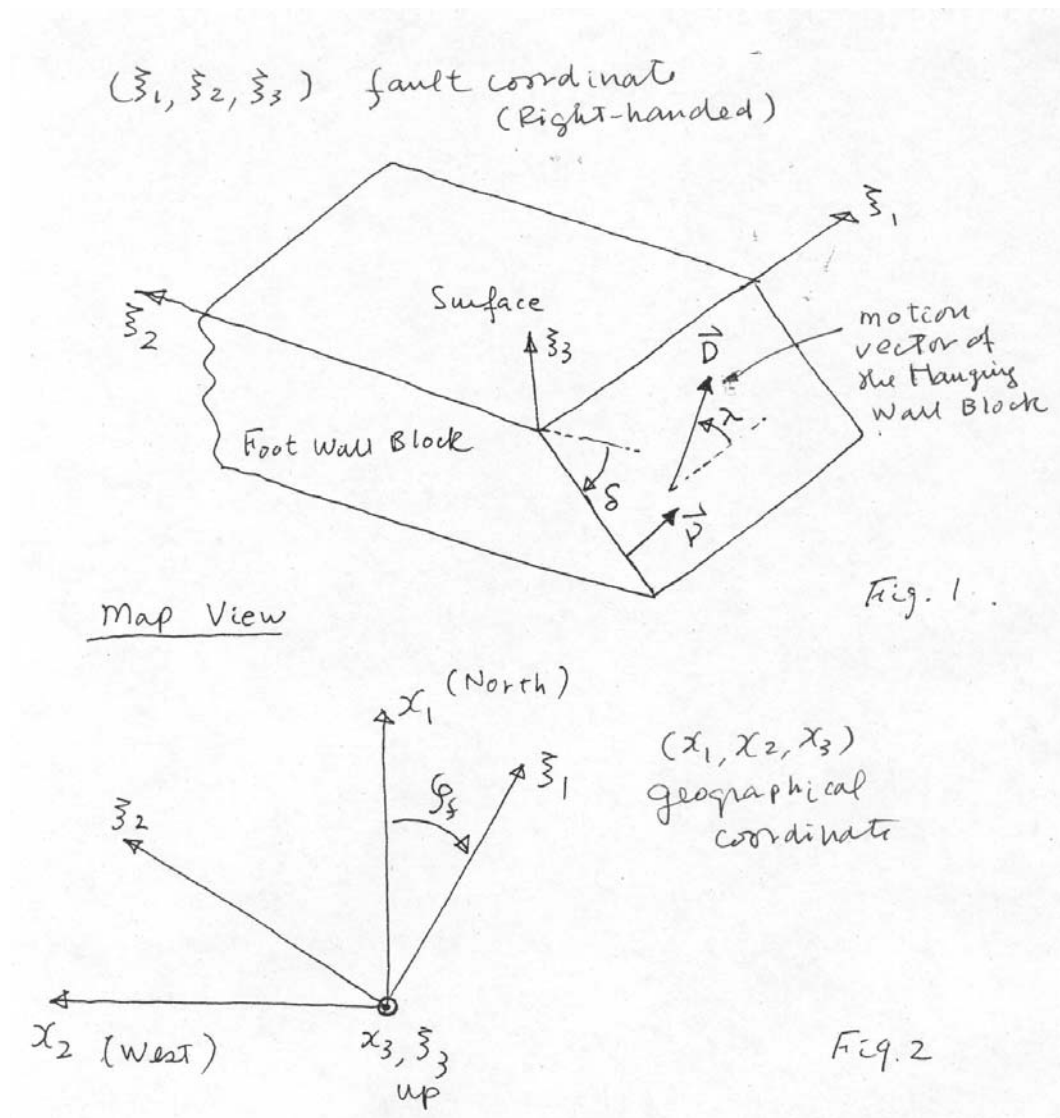 (ξ₁, ξ₂, ξ₃) fault coordinate
(Right-handed)
ξ₁
Surface
ξ₂
ξ₃
D⃗
motion
vector of
the Hanging
Wall Block
λ
Foot Wall Block
δ
ν⃗
Fig. 1.
Map View
x₁ (North)
(x₁, x₂, x₃)
geographical
coordinate
ξ₁
φ_f
ξ₂
x₂ (West)
x₃, ξ₃
up
Fig. 2